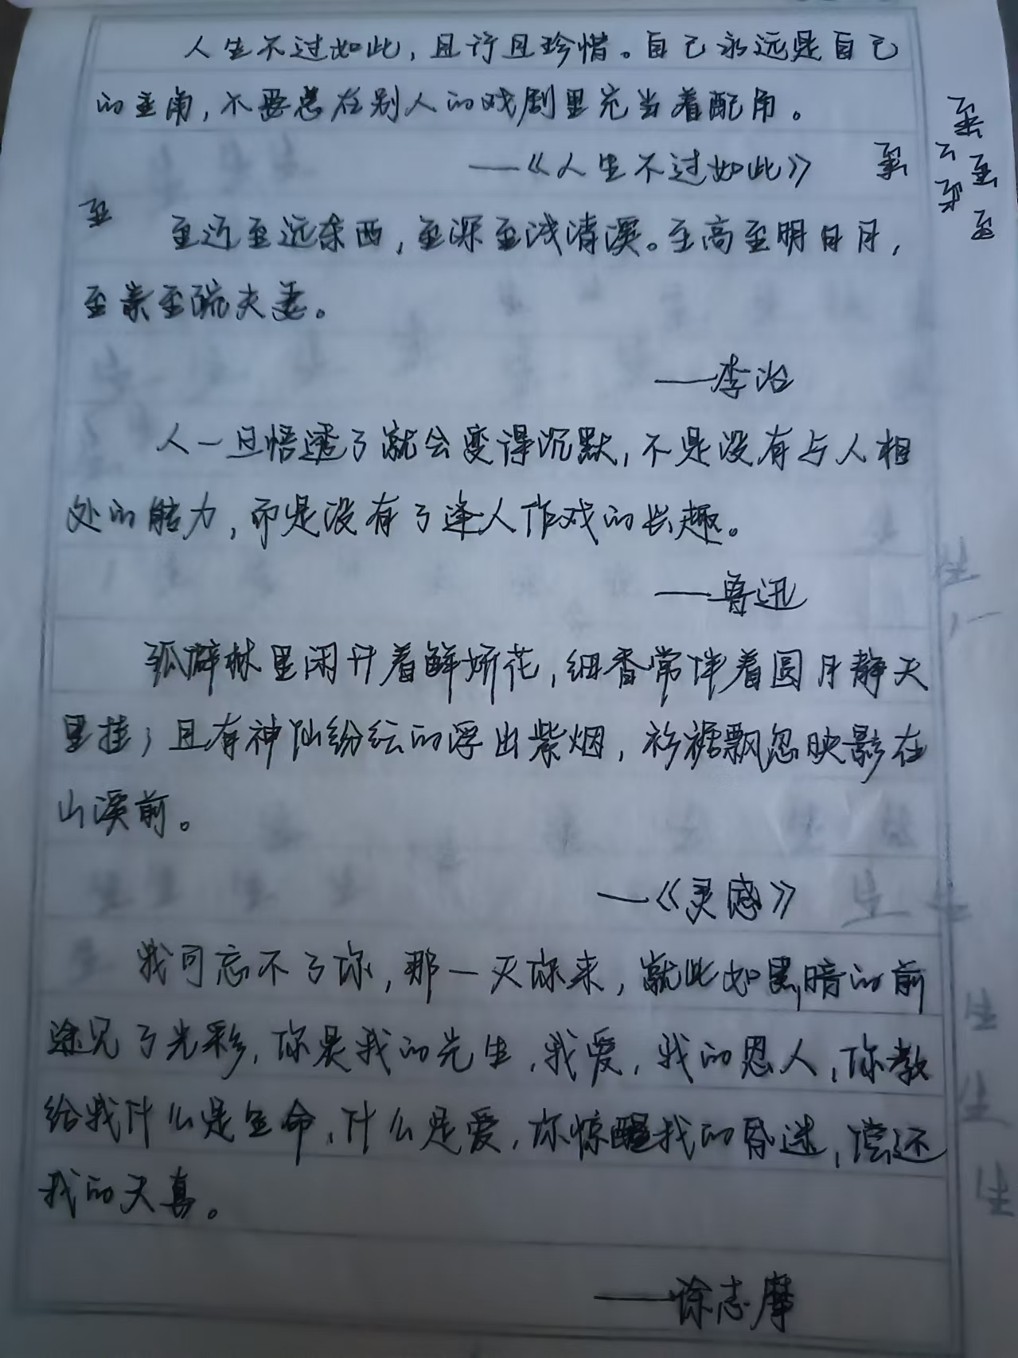 人生不过如此，且行且珍惜。自己永远是自己
的主角，不要总在别人的戏剧里充当着配角。
——《人生不过如此》
至
至近至远东西，至深至浅清溪。至高至明日月，
至亲至疏夫妻。
——李冶
人一旦悟透了就会变得沉默，不是没有与人相
处的能力，而是没有了逢人作戏的兴趣。
——鲁迅
孤僻林里闲开着鲜娇花，细香常伴着圆月静天
里挂；且有神仙纷纭的浮出紫烟，衫裾飘忽映影在
山溪前。
—《灵感》
我可忘不了你，那一天你来，就比如黑暗的前
途见了光彩，你是我的先生，我爱，我的恩人，你教
给我什么是生命，什么是爱，你惊醒我的昏迷，偿还
我的天真。
——徐志摩